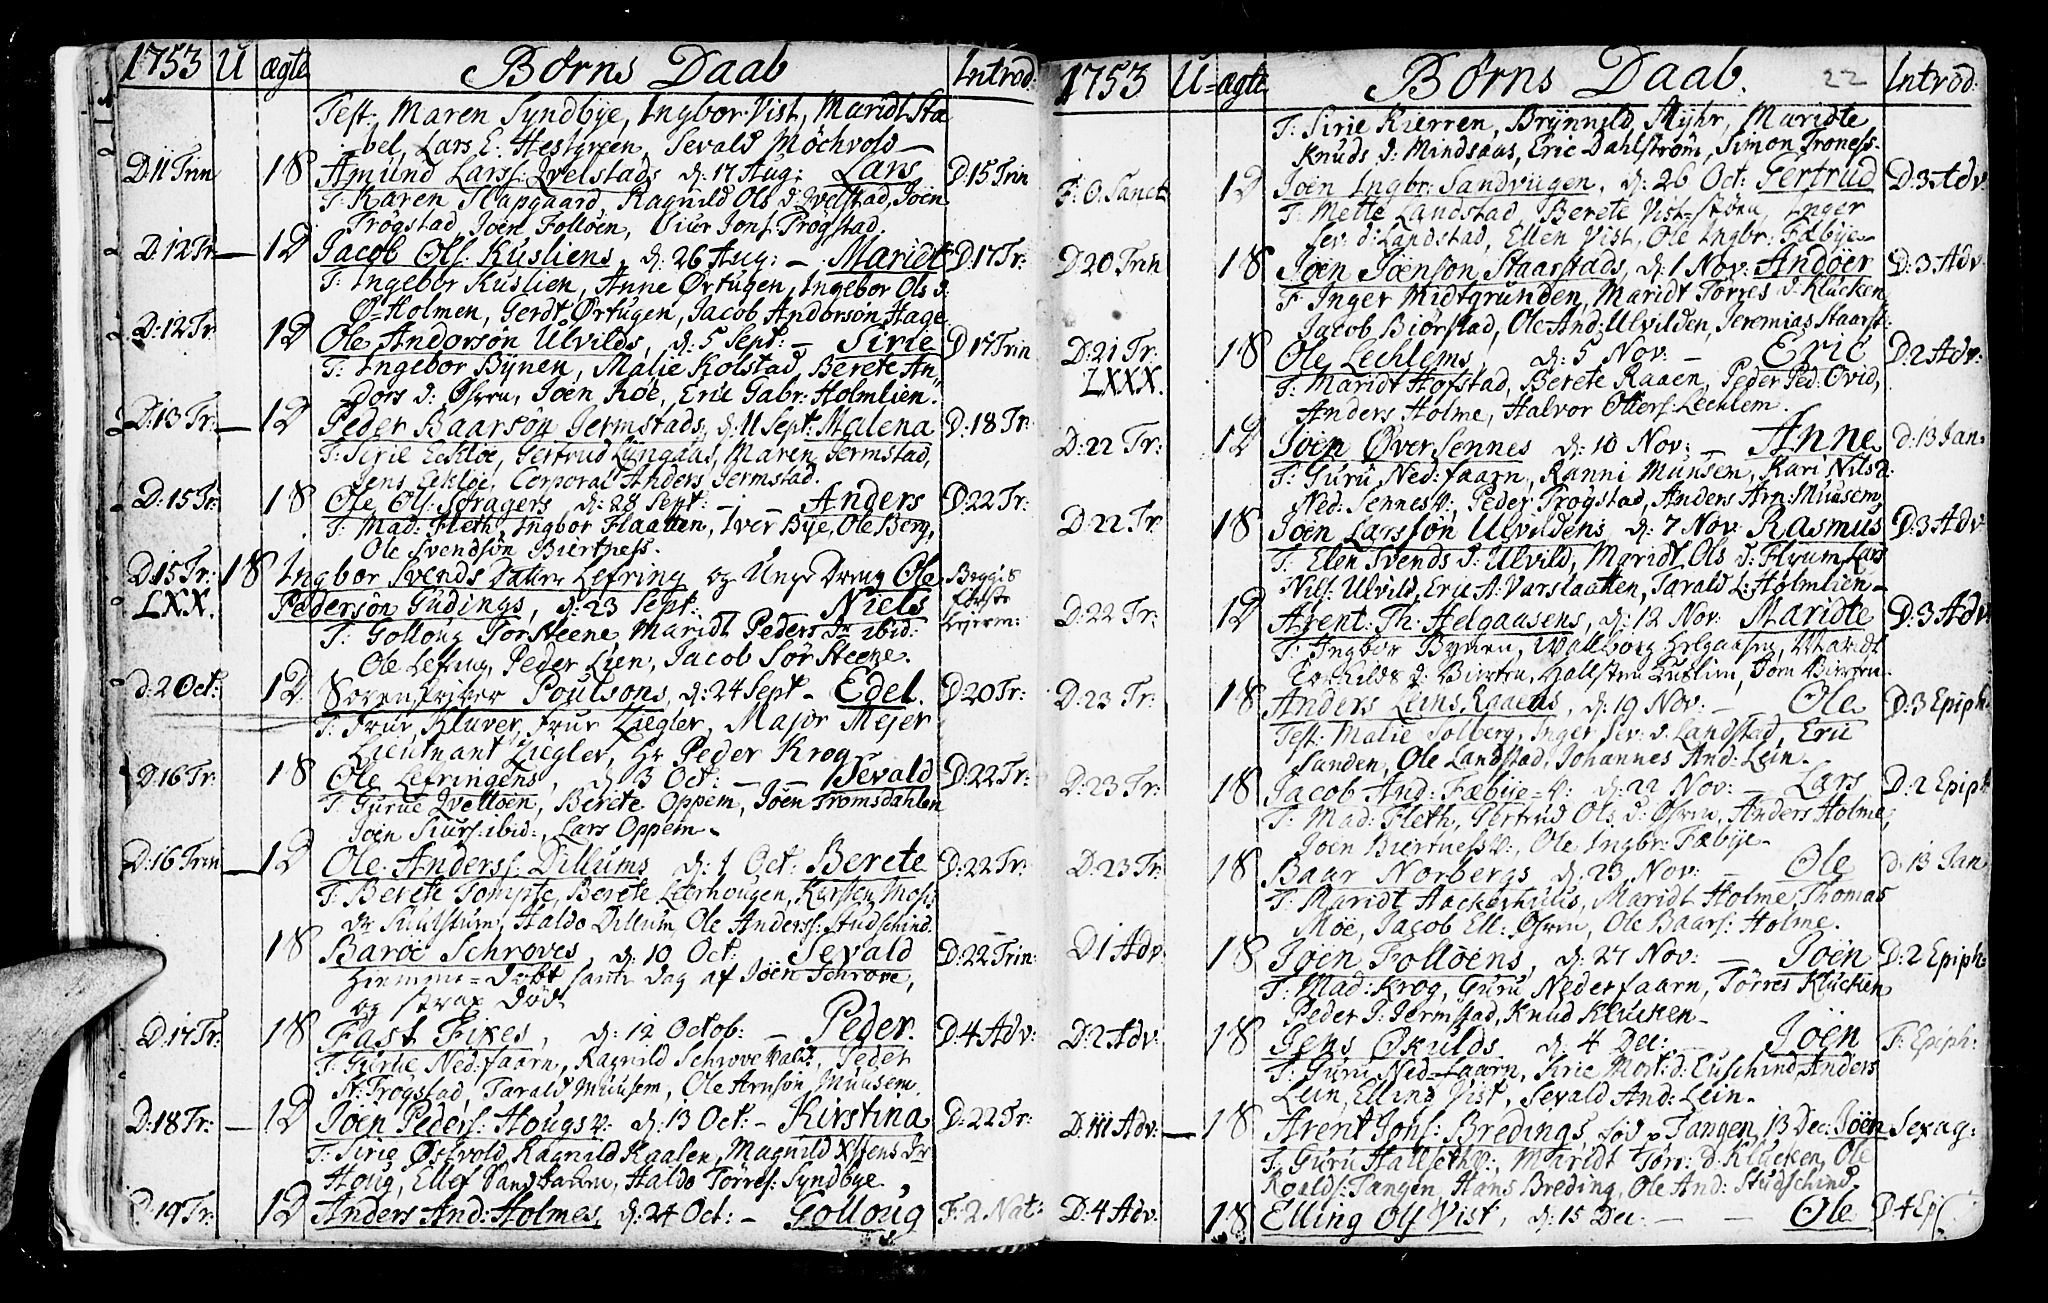 1753 U ægte Børns Daab Introd:
Test: Maren Syndbye, Ingbor Vist, Maridt Sta
bel, Lars E: Hestgreen, Sevald Möchvold
D.11 Trin 1 S Amund Larss: Qvelstads d: 17 Aug: Lars D.15 Trin
T: Karen Slapgaard, Ragnild Ols d: Qvelstad, Joen
Trögstad, Joen Folloen, Siur Jons. Trögstad.
D.12 Tr. 1 D Jacob Ols. Kusliens, d: 26 Aug: – Maridt D.17 Tr:
T: Ingebor Kuslien, Anne Ørtugen, Ingebor Ols d:
Ø-Holmen, Gerdt Ørtugen, Jacob Andersön Hage
D.12 Tr. 1 D Ole Andersön Ulvilds, d: 5 Sept: – Sirie D 17 Trin
T: Ingebor Bynen, Malie Kolstad, Berete An
ders d: Øvren, Joen Röe, Eric Gabr: Holmlien.
D.13 Tr: 1 D Peder Baarsön Germstads, d: 11 Sept: Malena D.18 Tr:
T: Sirie Eckloe, Gertrud Lyngaas, Maren Germstad,
Jens Eckloe, Corporal Anders Germstad.
D.15 Tr: 1 S Ole Ols. Soragers d: 28 Sept: – Anders D.22 Tr:
T: Mad: Fleth, Ingbor Flaatten, Iver Bye, Ole Berg,
Ole Svendsön Biertness.
D.15 Tr: 1 S Ingbor Svends Datter Lefring og Unge Dreng Ole Begges
LXX. Pedersön Gudings, d: 23 Sept: Niels første
T: Golloug Tor Steene, Maridt Peders Dr ibid: Lejerm:
Ole Lefring, Peder Lien, Jacob Sör Steene.
d: 2 Oct: 1 D Sorenskriver Poulsons, d: 24 Sept – Edel D.20 Tr:
T: Frue Kluver, Frue Ziegler, Major Mejer
Lieutnant Ziegler, Hr Peder Krog
D.16 Tr: 1 S Ole Lefringens, d: 3 Oct: – Sevald D.22 Tr:
T: Gurue Qvelloen, Berete Oppem, Jöen Tromsdahlen
Joen Siurs: ibid:, Lars Oppem.
D.16 Trin 1 D Ole Anderss: Dillums d: 1 Oct: Berete D.22 Tr:
T: Berete Tompte, Berete Leerhougen, Karsten Mos
dr Kuulstum, Haldo Dillum, Ole Anderss: Studschind.
1 S Baroe Schroves, d: 10 Oct: Sevald D.22 Trin:
Hiemme-Døbt samme Dag af Jöen Schrove,
og strax død.
D.17 Tr. 1 S Fast Fixes, d: 12 Octob: – Peder. D.4 Adv:
T: Gurue Ned: faarn, Ragnild Schrove Vald, Peder
St: Trögstad, Tarald Muusem, Ole Arnsön Muusem.
D.18 Tr: 1 D Jöen Peders: Hougs v: d: 13 Oct: – Kirstina D.22 Tr:
T: Sirie Østvold, Ragnild Raalen, Magnild Xstens Dr
Houg, Ellef Sandbachen, Haldo Törres: Syndbye.
D.19 Tr: 1 D Anders And: Holmes, d: 24 Oct: – Golloug F: 2 Nat:
1753 U- ægte Børns Daab. 22 Introd:
T: Sirie Kierren, Brynnild Myhr, Maridte
Knuds d: Mindsaas, Eric Dahlström, Simon Troness.
F. O. Sanct 1 D Joen Ingbr: Sandviigen, d: 26 Oct: Gertrud D.3 Adv
T: Mette Landstad, Berete Vist-støen, Inger
Sev: d: Landstad, Ellen Vist, Ole Ingbr: Fæbye
D.20 Trin 1 S Jöen Jöenson Staarstads, d: 1 Nov: Andoer D:3 Adv
T: Inger Midtgrunden, Maridt Törres d: Klucken,
Jacob Biörstad, Ole And: Ulvilden, Jeremias Staarst:
D:21 Tr. 1 S Ole Lechlems, d: 5 Nov: – Eric D:2 Adv:
LXXX. T: Maridt Hofstad, Berete Raaen, Peder Ped: Ovid,
Anders Holme, Halvor Otters: Lechlem.
D:22 Tr: 1 D Joen Över Sennes d: 10 Nov: – Anne d:13 Jan.
T: Guru Ned: faarn, Ranni Munsem, Kari Nils d:
Ned: Sennes v:, Peder Trögstad, Anders Arn: Muusem
D:22 Tr. 1 S Jöen Larssön Ulvildens d: 7 Nov: Rasmus D:3 Adv
T: Elen Svends d: Ulvild, Maridt Ols d: Flyum, Lars
Nils: Ulvild, Eric A: Varslaatten, Tarald L: Holmlien –
D:22 Tr: 1 D Arent Th: Helgaasens, d: 12 Nov: Maridte D:3 Adv
T: Ingbor Bynen, Walborg Helgaasen, Maridt
Eschilds d: Bierten, Hallsten Kuslien, Tom Bierten.
D:23 Tr: 1 S Anders Leins Raaens, d: 19 Nov: – Ole D:3 Epiph:
Test: Malie Solberg, Inger Sev: d: Landstad, Eric
Sunden, Ole Landstad, Johannes And: Lein.
D:23 Tr: 1 S Jacob And: Fæbye-v: d: 22 Nov: – Lars D:2 Epiph
T: Mad: Fleth, Gertrud Ols d: Øvren, Anders Holme,
Joen Biertness v:, Ole Ingbr: Fæbye.
D:23 Tr: 1 S Baar Norbergs d: 23 Nov: – Ole d:13 Jan
T: Maridt Hackerhuus, Maridt Holme, Thomas
Möe, Jacob Ell: Øvren, Ole Baars: Holme.
D 1 Adv. 1 S Jöen Folloens, d: 27 Nov: – Jöen D:2 Epiph:
T: Mad: Krog, Guru Nederfaarn, Törres Klucken
Peder J: Germstad, Knud Klucken –
D:2 Adv: 1 S Jens Økulds d: 4 Dec: – Jöen F: Epiph:
T: Guru Ned-faarn, Sirie Mort: d: Euschind, Anders
Lein, Elling Vist, Sevald And: Lein.
D: III Adv: 1 S Arent Jons: Bredings, fød p Tangen, 13 Dec: Jöen Sexag:
T: Guru Hallseth v:, Maridt Törr: d: Klucken, Ole
Roalds: Tangen, Hans Breding, Ole And: Studschind.
D:4 Adv: 1 S Elling Ols Vist, d: 15 Dec: – Ole D 4 Ep